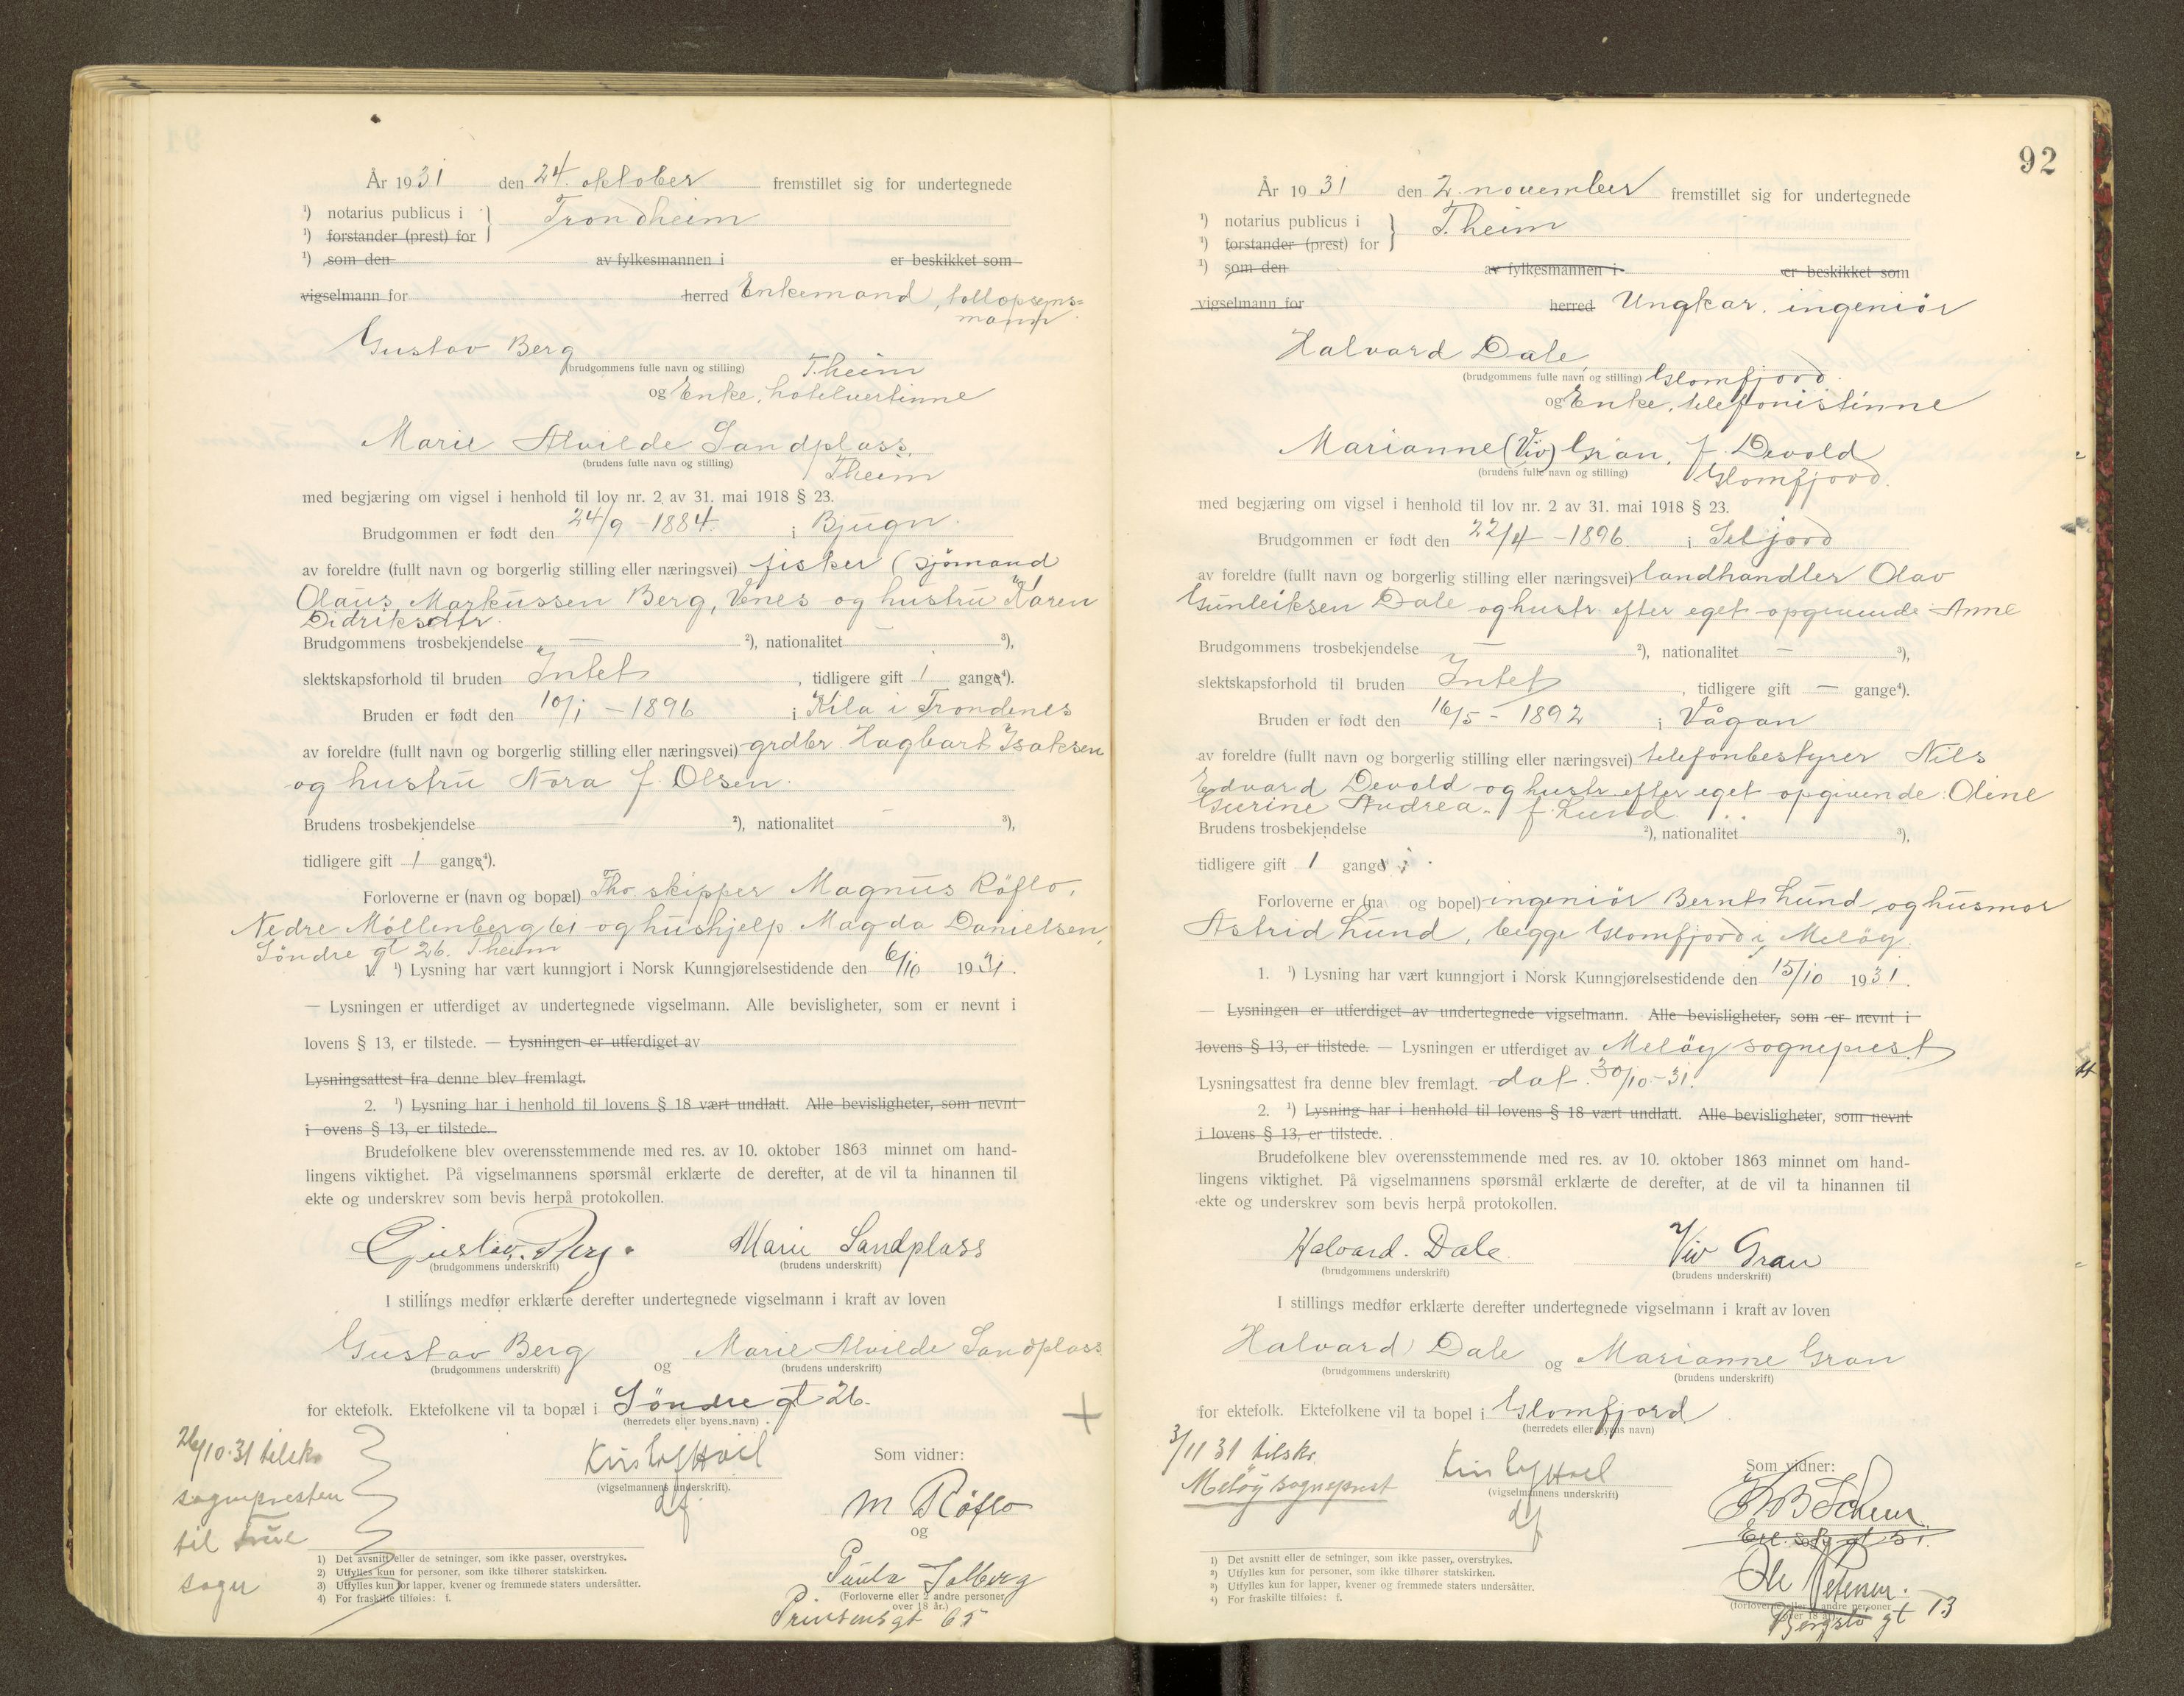 År 1931 den 24. oktober fremstillet sig for undertegnede
¹) notarius publicus i } Trondheim
¹) forstander (prest) for
¹) som den av fylkesmannen i er beskikket som
vigselmann for herred Enkemand, tollopsyns=
mann
Gustav Berg
(brudgommens fulle navn og stilling) T.heim
og Enke, hotelvertinne
Marie Alvilde Sandplass.
(brudens fulle navn og stilling) Theim
med begjæring om vigsel i henhold til lov nr. 2 av 31. mai 1918 § 23.
Brudgommen er født den 24/9 - 1884. i Bjugn.
av foreldre (fullt navn og borgerlig stilling eller næringsvei) fisker (sjömand
Olaus Markussen Berg, Vnes og hustru Karen
Didriksdtr.
Brudgommens trosbekjendelse — ²), nationalitet — ³),
slektskapsforhold til bruden Intet, tidligere gift 1 gange⁴).
Bruden er født den 10/1 - 1896 i Kila i Trondenes
av foreldre (fullt navn og borgerlig stilling eller næringsvei) grdbr. Hagbart Isaksen
og hustru Nora f. Olsen.
Brudens trosbekjendelse — ²), nationalitet — ³),
tidligere gift 1 gange⁴).
Forloverne er (navn og bopæl) Tho skipper Magnus Röflo,
Nedre Möllenberg 61 og hushjelp Magda Danielsen,
Söndre gt 26. Theim
1. ¹) Lysning har vært kunngjort i Norsk Kunngjørelsestidende den 6/10 1931.
— Lysningen er utferdiget av undertegnede vigselmann. Alle bevisligheter, som er nevnt i
lovens § 13, er tilstede. — Lysningen er utferdiget av
Lysningsattest fra denne blev fremlagt.
2. ¹) Lysning har i henhold til lovens § 18 vært undlatt. Alle bevisligheter, som nevnt
i ovens § 13, er tilstede.
Brudefolkene blev overensstemmende med res. av 10. oktober 1863 minnet om hand-
lingens viktighet. På vigselmannens spørsmål erklærte de derefter, at de vil ta hinannen til
ekte og underskrev som bevis herpå protokollen.
Gustav Berg. Marie Sandplass
(brudgommens underskrift) (brudens underskrift)
I stillings medfør erklærte derefter undertegnede vigselmann i kraft av loven
Gustav Berg og Marie Alvilde Sandplass
(brudgommens underskrift) (brudens underskrift)
for ektefolk. Ektefolkene vil ta bopæl i Söndre gt 26.
(herredets eller byens navn)
26/10.31 tilskr
sognepresten
til
sogn
(vigselmannens underskrift).
df.
Som vidner:
M Röflo
og
Paula Solberg
(Forloverne eller 2 andre personer
over 18 år.)
Prinsensgt 65
1) Det avsnitt eller de setninger, som ikke passer, overstrykes.
2) Utfylles kun for personer, som ikke tilhører statskirken.
3) Utfylles kun for lapper, kvener og fremmede staters undersåtter.
4) For fraskilte tilføies: f.
92
År 1931 den 2. november fremstillet sig for undertegnede
¹) notarius publicus i } T.heim
¹) forstander (prest) for
¹) som den av fylkesmannen i er beskikket som
vigselmann for herred Ungkar, ingeniör
Halvard Dale
(brudgommens fulle navn og stilling) Glomfjord.
og Enke, telefonistinne
Marianne (Viv) Gran, f. Devold
(brudens fulle navn og stilling) Glomfjord.
med begjæring om vigsel i henhold til lov nr. 2 av 31. mai 1918 § 23.
Brudgommen er født den 22/4 - 1896. i Seljord
av foreldre (fullt navn og borgerlig stilling eller næringsvei) landhandler Olav
Gunleiksen Dale og hustr. efter eget opgivende Anne
Brudgommens trosbekjendelse — ²), nationalitet — ³),
slektskapsforhold til bruden Intet, tidligere gift — gange⁴).
Bruden er født den 16/5 - 1892 i Vågan
av foreldre (fullt navn og borgerlig stilling eller næringsvei) telefonbestyrer Nils
Edvard Devold og hustr. efter eget opgivende Oline
Gurine Andrea f. Lund.
Brudens trosbekjendelse ²), nationalitet ³),
tidligere gift 1 gange
Forloverne er (na og bopel) ingeniör Bernt Lund og husmor
Astrid Lund, begge Glomfjord i Melöy.
1. ¹) Lysning har vært kunngjort i Norsk Kunngjørelsestidende den 15/10 1931.
— Lysningen er utferdiget av undertegnede vigselmann. Alle bevisligheter, som er nevnt i
lovens § 13, er tilstede. — Lysningen er utferdiget av Melöy sogneprest
Lysningsattest fra denne blev fremlagt. dat. 30/10-31.
2. ¹) Lysning har i henhold til lovens § 18 vært undlatt. Alle bevisligheter, som nevnt
i lovens § 13, er tilstede.
Brudefolkene blev overensstemmende med res. av 10. oktober 1863 minnet om hand-
lingens viktighet. På vigselmannens spørsmål erklærte de derefter, at de vil ta hinannen til
ekte og underskrev som bevis herpå protokollen.
Halvard Dale Viv Gran
(brudgommens underskrift) (brudens underskrift)
I stillings medfør erklærte derefter undertegnede vigselmann i kraft av loven
Halvard Dale og Marianne Gran
(brudgommens underskrift) (brudens underskrift)
for ektefolk. Ektefolkene vil ta bopel i Glomfjord
(herredets eller byens navn)
3/11 31 tilskr.
Melöy sogneprest
(vigselmannens underskrift)
df
Som vidner:
Ole Petersen.
(forloverne eller 2 andre personer
over 18 år)
gt 13
¹) Det avsnitt eller de setninger, som ikke passer, overstrykes.
²) Utfylles kun for personer, som ikke tilhører statskirken.
³) Utfylles kun for lapper, kvener og fremmede staters undersåtter.
⁴) For fraskilte tilføies: f.